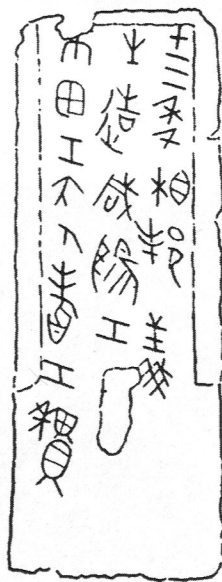 十三年相邦義
之造咸陽工
帀田工大人耆工